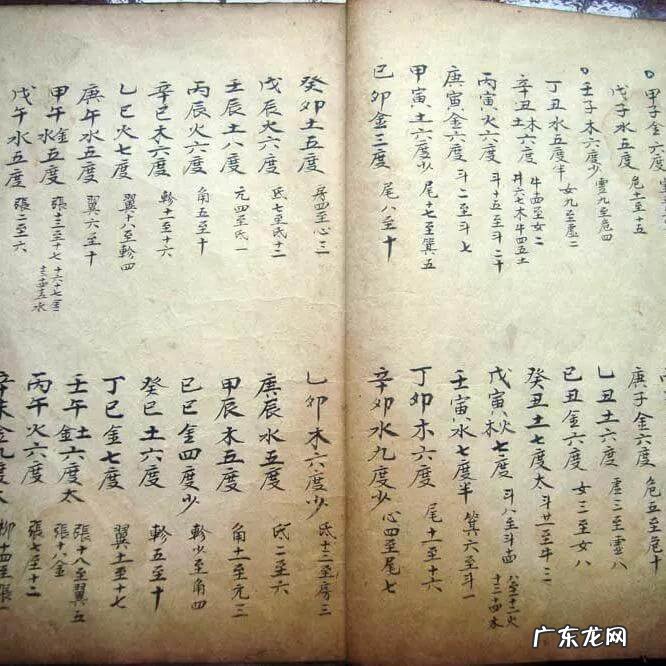 甲子金六度
戊子水五度 危十一至十五
庚子金六度 危五至危十
壬子木六度少 虚九至危四
乙丑土六度 虚三至虚八
丁丑水五度半 女九至虚二
己丑金六度 女三至女八
辛丑土木六度 牛四至女二 牛六七木牛四五土
癸丑土七度太 斗廿一至牛二
丙寅火六度 斗十五至斗二十
戊寅火木七度 斗八至斗十四 八至十二火 十三十四木
庚寅金六度 斗二至斗七
壬寅水七度半 箕六至斗一
甲寅土六度少 尾十七至箕五
丁卯木六度 尾十一至十六
己卯金三度 尾八至十
辛卯水九度少 心四至尾七
癸卯土五度 房四至心三
乙卯木六度少 氐十三至房三
戊辰火六度 氐七至氐十二
庚辰水五度 氐二至六
壬辰土八度 亢四至氐一
甲辰木五度 角十一至亢三
丙辰火六度 角五至十
己巳金四度少 軫少至角四
辛巳木六度 軫十一至十六
癸巳土六度 軫五至十
乙巳火七度 翼十八至軫四
丁巳金七度 翼十一至十七
庚午水五度 翼六至十
壬午土金六度太 張十八至翼五 張十八金
甲午金水五度 張十三至十七 十六十七金
丙午火六度 張七至十二
戊午水五度 張二至六
辛未金九度太 柳十四至張一